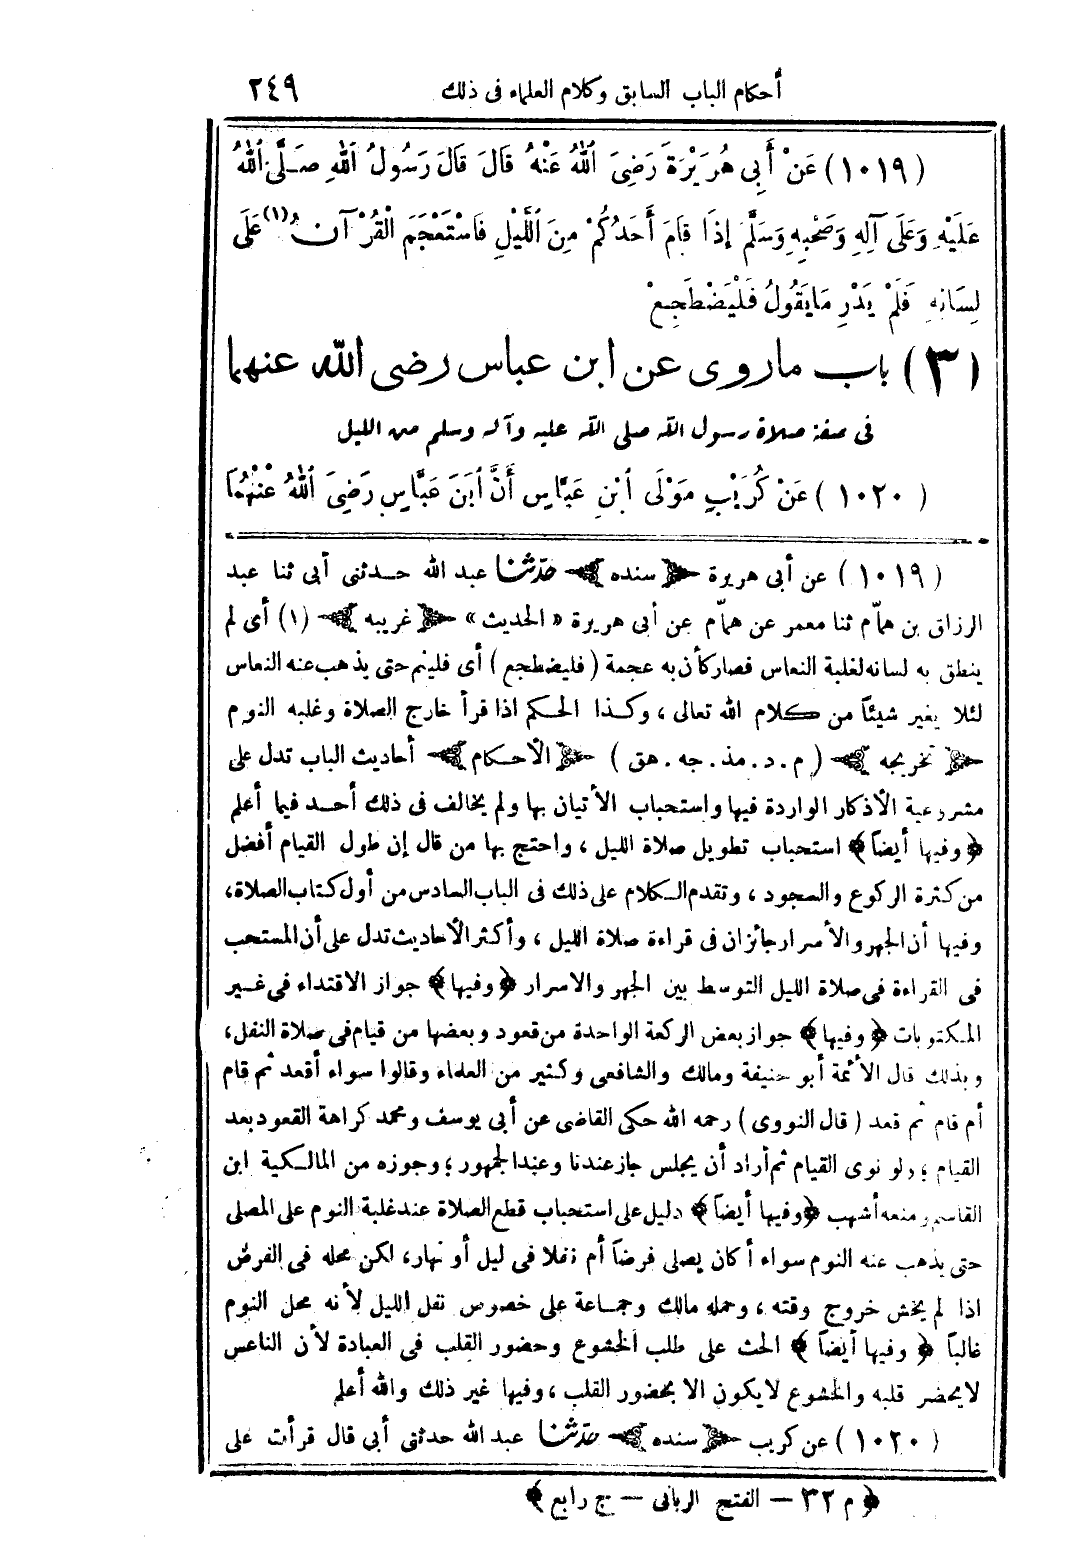 أحكام الباب السابق وكلام العلماء فى ذلك ٢٤٩
(١٠١٩) عَنْ أَبِى هُرَيْرَةَ رَضِىَ ٱللهُ عَنْهُ قَالَ قَالَ رَسُولُ ٱللهِ صَلَّى ٱللهُ
عَلَيْهِ وَعَلَى آلِهِ وَصَحْبِهِ وَسَلَّمَ إِذَا قَامَ أَحَدُكُمْ مِنَ ٱللَّيْلِ فَاسْتَعْجَمَ الْقُرْآنُ (١) عَلَى
لِسَانِهِ فَلَمْ يَدْرِ مَا يَقُولُ فَلْيَضْطَجِعْ
(٣) باب ما روى عن ابن عباس رضى الله عنهما
فى صفة صلاة رسول الله صلى الله عليه وآله وسلم من الليل
(١٠٢٠) عَنْ كُرَيْبٍ مَوْلَى ٱبْنِ عَبَّاسٍ أَنَّ ٱبْنَ عَبَّاسٍ رَضِىَ ٱللهُ عَنْهُمَا
(١٠١٩) عن أبى هريرة ﴿سنده﴾ حدّثنا عبد الله حدثنى أبى ثنا عبد
الرزاق بن همّام ثنا معمر عن همّام عن أبى هريرة «الحديث» ﴿غريبه﴾ (١) أى لم
ينطق به لسانه لغلبة النعاس فصار كأن به عجمة (فليضطجع) أى فلينم حتى يذهب عنه النعاس
لئلا يغير شيئاً من كلام الله تعالى، وكذا الحكم اذا قرأ خارج الصلاة وغلبه النوم
﴿تخريجه﴾ (م. د. مذ. جه. هق) ﴿الأحكام﴾ أحاديث الباب تدل على
مشروعية الأذكار الواردة فيها واستحباب الأتيان بها ولم يخالف فى ذلك أحد فيما أعلم
﴿وفيها أيضاً﴾ استحباب تطويل صلاة الليل، واحتج بها من قال إن طول القيام أفضل
من كثرة الركوع والسجود، وتقدم الكلام على ذلك فى الباب السادس من أول كتاب الصلاة،
وفيها أن الجهر والأسرار جائزان فى قراءة صلاة الليل، وأكثر الأحاديث تدل على أن المستحب
فى القراءة فى صلاة الليل التوسط بين الجهر والاسرار ﴿وفيها﴾ جواز الاقتداء فى غير
المكتوبات ﴿وفيها﴾ جواز بعض الركعة الواحدة من قعود وبعضها من قيام فى صلاة النفل،
وبذلك قال الأئمة أبو حنيفة ومالك والشافعى وكثير من العلماء وقالوا سواء أقعد ثم قام
أم قام ثم قعد (قال النووى) رحمه الله حكى القاضى عن أبى يوسف ومحمد كراهة القعود بعد
القيام؛ ولو نوى القيام ثم أراد أن يجلس جاز عندنا وعند الجمهور؛ وجوزه من المالكية ابن
القاسم ومنعه أشهب ﴿وفيها أيضاً﴾ دليل على استحباب قطع الصلاة عند غلبة النوم على المصلى
حتى يذهب عنه النوم سواء أكان يصلى فرضاً أم نفلا فى ليل أو نهار، لكن محله فى الفرض
اذا لم يخش خروج وقته، وحمله مالك وجماعة على خصوص نفل الليل لأنه محل النوم
غالباً ﴿وفيها أيضاً﴾ الحث على طلب الخشوع وحضور القلب فى العبادة لأن الناعس
لا يحضر قلبه والخشوع لا يكون الا بحضور القلب، وفيها غير ذلك والله أعلم
(١٠٢٠) عن كريب ﴿سنده﴾ حدّثنا عبد الله حدثنى أبى قال قرأت على
﴿م ٣٢ — الفتح الربانى — ج رابع﴾